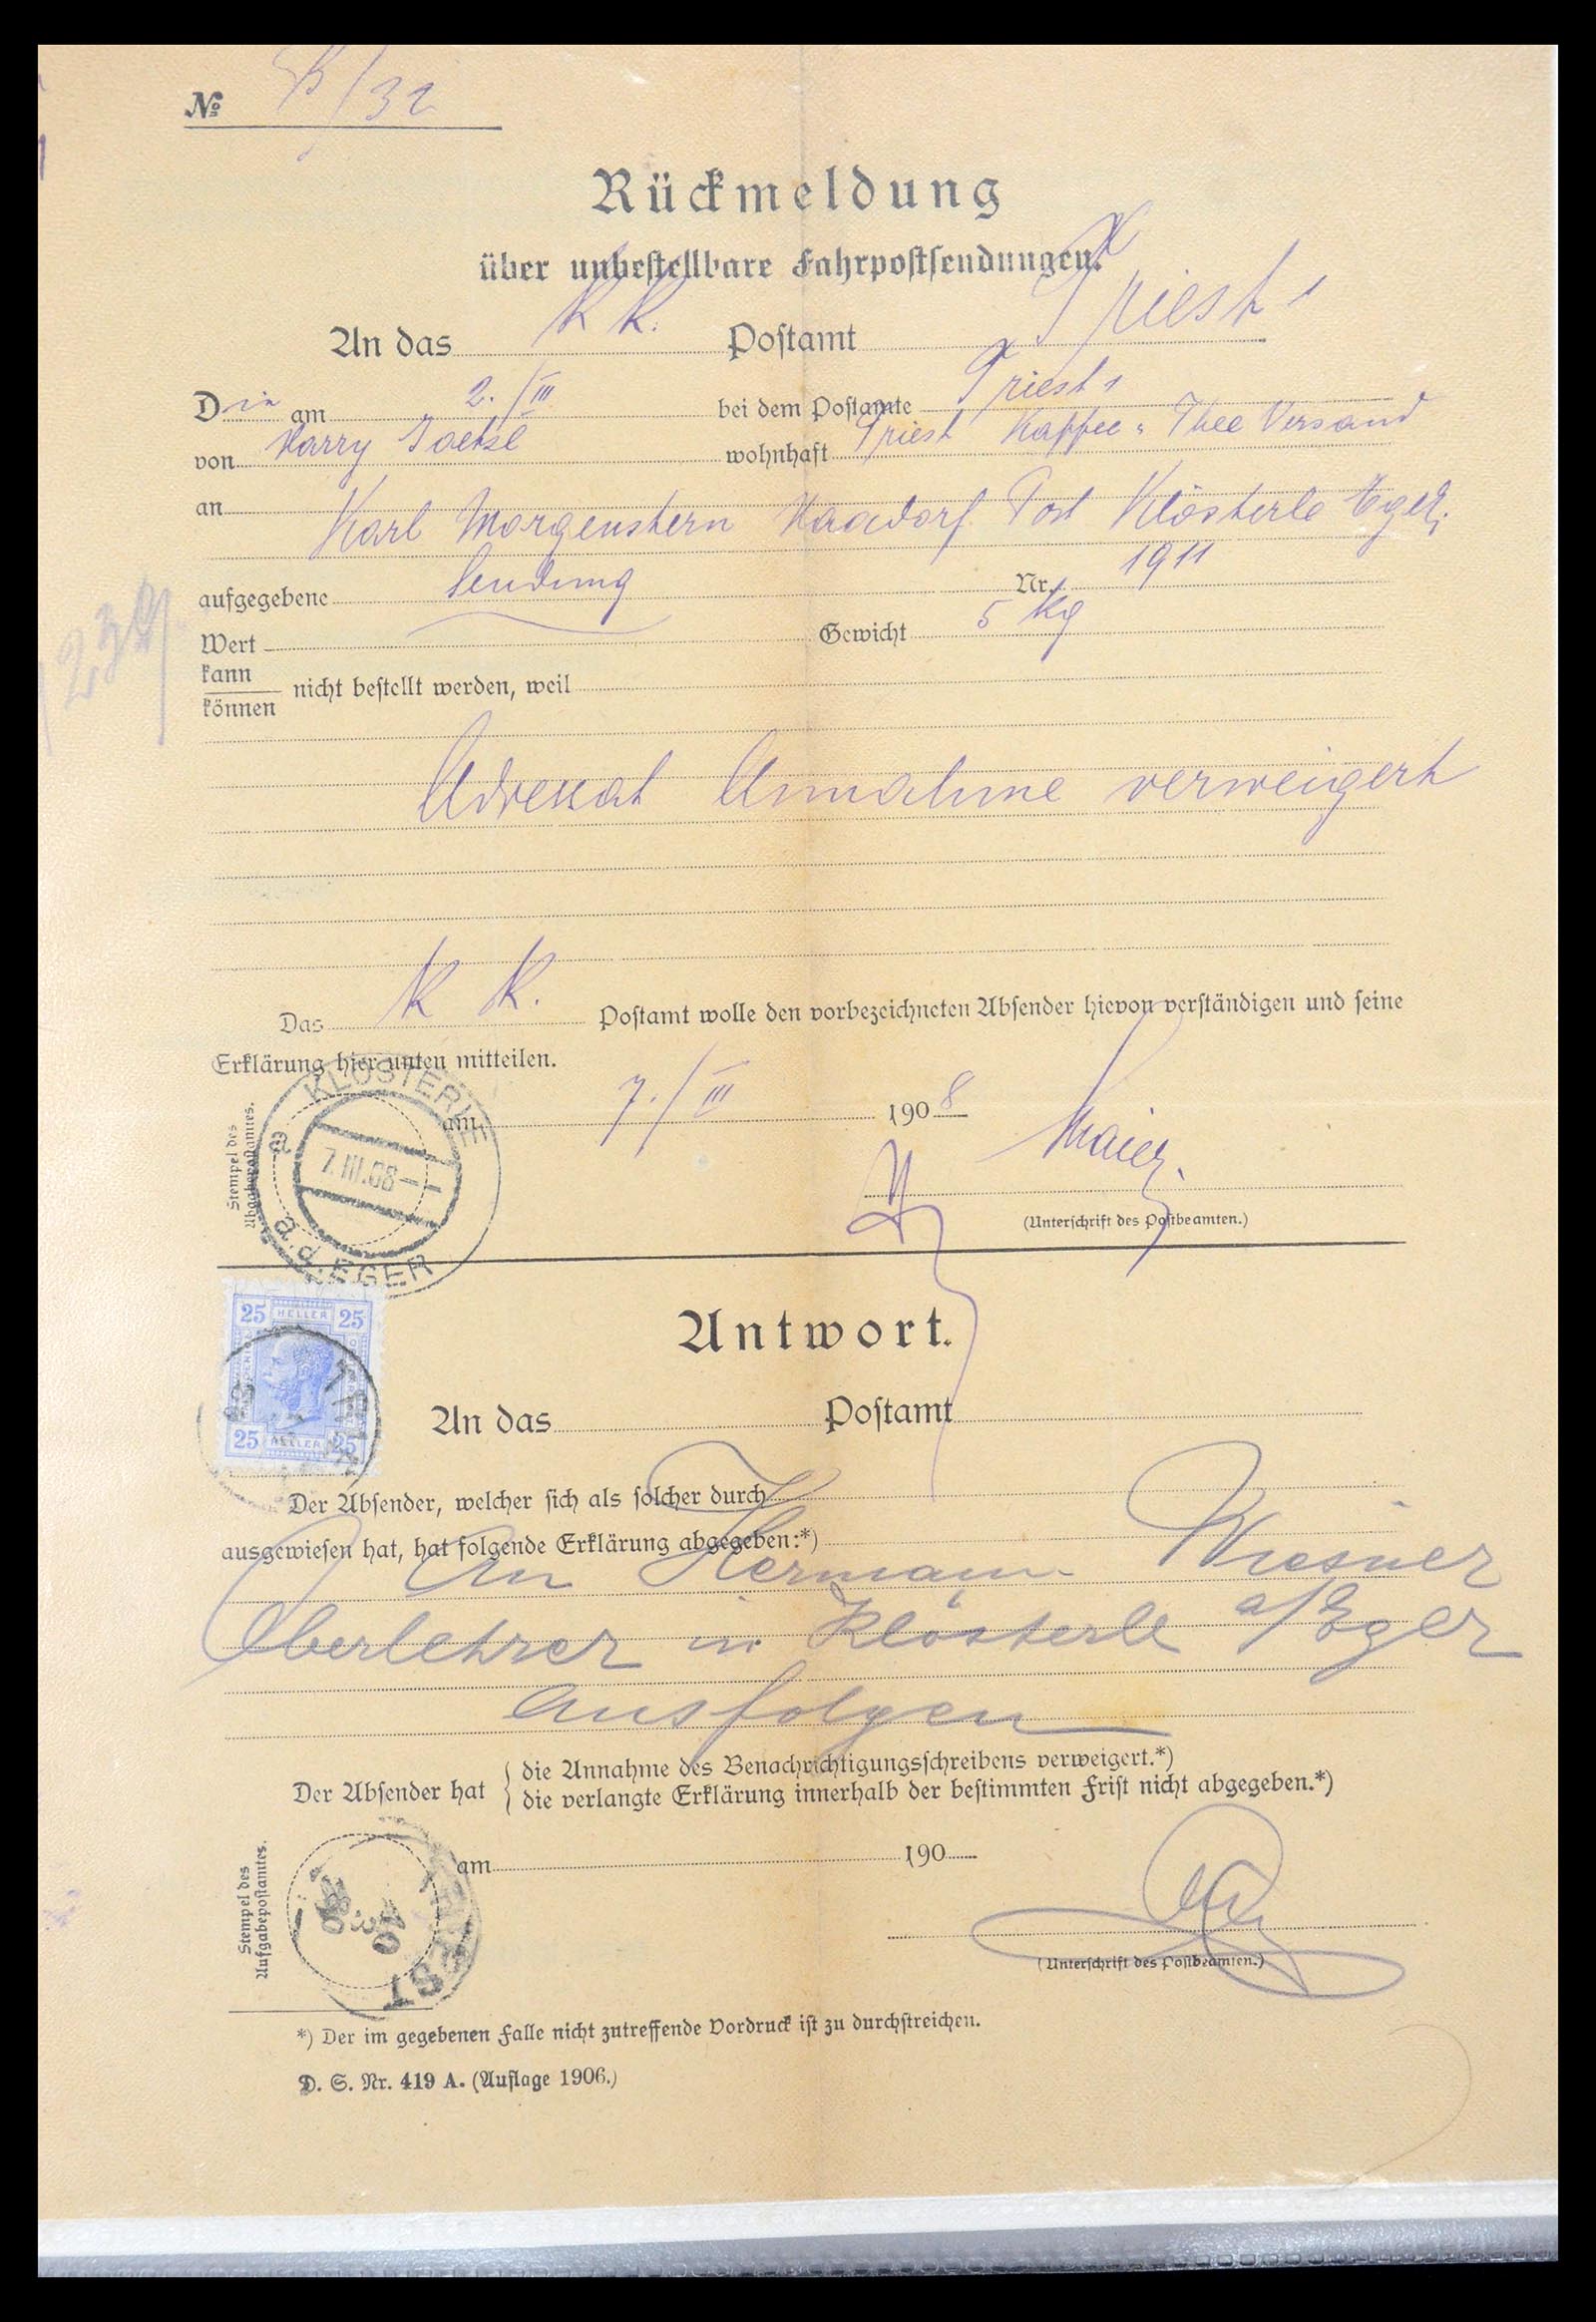 № /32
Rückmeldung
über unbestellbare Fahrpostsendungen.
An das K. K. Postamt Triest 1
Die am 2./III bei dem Postamte Triest 1
von Harry wohnhaft Triest Kaffee u Thee Versand
an Karl Morgenstern Haadorf Post Klösterle Eger
aufgegebene Sendung Nr. 1911
Wert Gewicht 5 Kg
kann
können nicht bestellt werden, weil
Adressat Annahme verweigert
Das K K. Postamt wolle den vorbezeichneten Absender hievon verständigen und seine
Erklärung hier unten mitteilen.
Stempel des
Abgabepostamtes.
KLÖSTERLE
a
7.III.08
a.d.EGER
am 7./III 1908
Maier
(Unterschrift des Postbeamten.)
Antwort.
25 HELLER 25
25 HELLER 25
An das Postamt
Der Absender, welcher sich als solcher durch
ausgewiesen hat, hat folgende Erklärung abgegeben:*)
An Hermann Wiesner
Oberlehrer in Klösterle a/Eger
ausfolgen
Der Absender hat { die Annahme des Benachrichtigungsschreibens verweigert.*)
die verlangte Erklärung innerhalb der bestimmten Frist nicht abgegeben.*)
Stempel des
Aufgabepostamtes.
am 190
(Unterschrift des Postbeamten.)
*) Der im gegebenen Falle nicht zutreffende Vordruck ist zu durchstreichen.
D. S. Nr. 419 A. (Auflage 1906.)